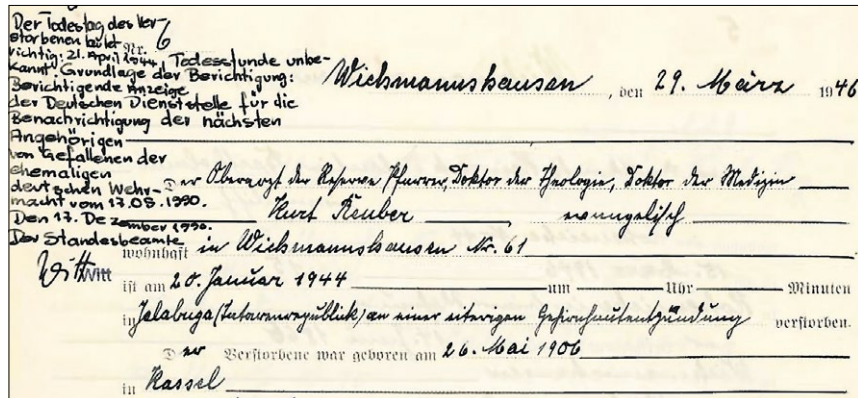 Der Todestag des Ver-
storbenen lautet
richtig: 21. April 1944, Todesstunde unbe-
kannt. Grundlage der Berichtigung:
Berichtigende Anzeige
der Deutschen Dienststelle für die
Benachrichtigung der nächsten
Angehörigen
von Gefallenen der
ehemaligen
deutschen Wehr-
macht vom 17.08.1990.
Den 17. Dezember 1990.
Der Standesbeamte
Witt Witt
Nr. 6
Wichmannshausen, den 29. März 1946
Der Oberarzt der Reserve Pfarrer, Doktor der Theologie, Doktor der Medizin
Kurt Reuber, evangelisch
wohnhaft in Wichmannshausen Nr. 61
ist am 20. Januar 1944 um Uhr Minuten
in Jelabuga (Tatarenrepublick) an einer eiterigen Gehirnhautentzündung verstorben.
Der Verstorbene war geboren am 26. Mai 1906
in Kassel